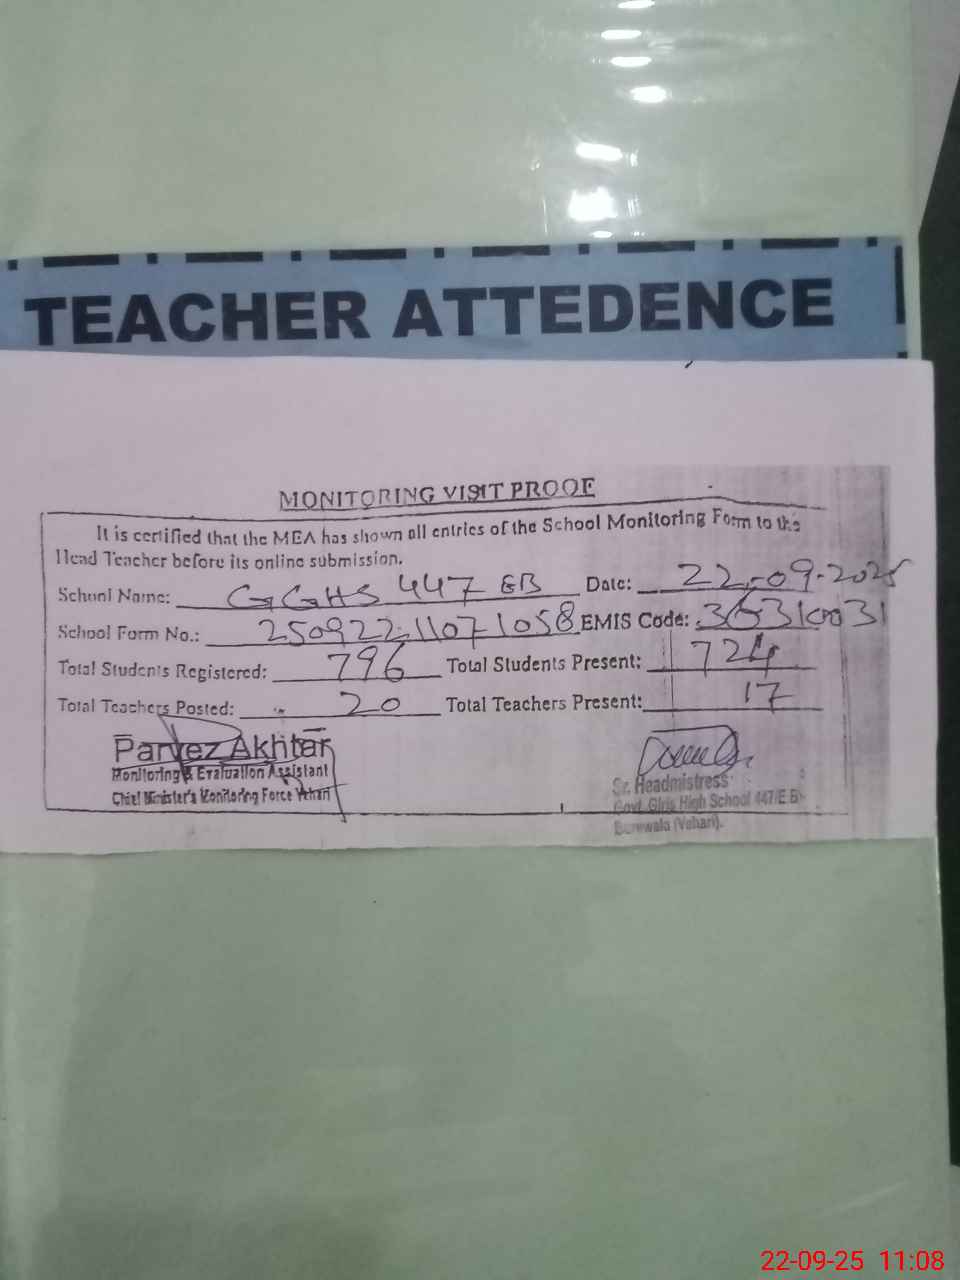 TEACHER ATTEDENCE
MONITORING VISIT PROOF
It is certified that the MEA has shown all entries of the School Monitoring Form to the
Head Teacher before its online submission.
School Name: GGHS 447 EB Date: 22-09-2025
School Form No.: 25092211071058 EMIS Code: 36310031
Total Students Registered: 796 Total Students Present: 724
Total Teachers Posted: 20 Total Teachers Present: 17
Parvez Akhtar
Monitoring & Evaluation Assistant
Chief Minister's Monitoring Force Vehari
Sr. Headmistress
Govt. Girls High School 447/E.B
Burewala (Vehari).
22-09-25 11:08